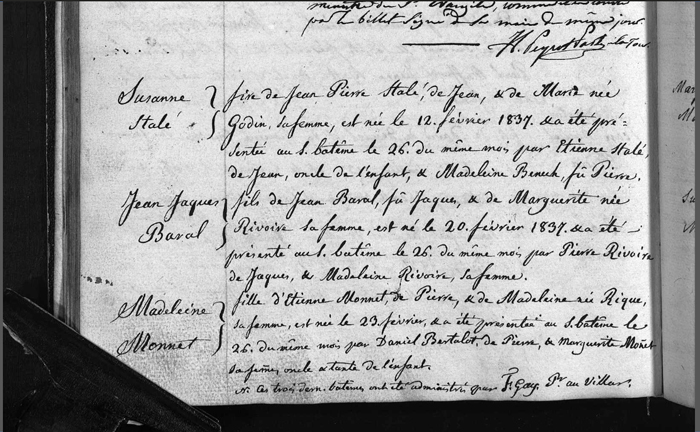 ministre du St. Evangile,
par le billet signé de la main de même jour.
H. Peyrot Past.
Susanne
Stalé
fire de Jean Pierre Stalé, de Jean, & de Marie née
Godin, sa femme, est née le 12. février 1837. & a été pré-
sentée au S. batême le 26. du même mois par Etienne Stalé,
de Jean, oncle de l'enfant, & Madeleine Benech, fû Pierre.
Jean Jaques
Baral
fils de Jean Baral, fû Jaques, & de Marguerite née
Rivoire sa femme, est né le 20. février 1837. & a été
présenté au S. batême le 26. du même mois par Pierre Rivoire
de Jaques, & Madeleine Rivoire, sa femme.
Madeleine
Monnet
fille d'Etienne Monnet, de Pierre, & de Madeleine née Rique,
sa femme, est née le 23. février, & a été présentée au S. batême le
26. du même mois par Daniel Bertalot, de Pierre, & Marguerite Moñet
sa femme, oncle & tante de l'enfant.
N: Ces trois dern. batêmes ont été administrés par F. Gay, Pr. au Villar.